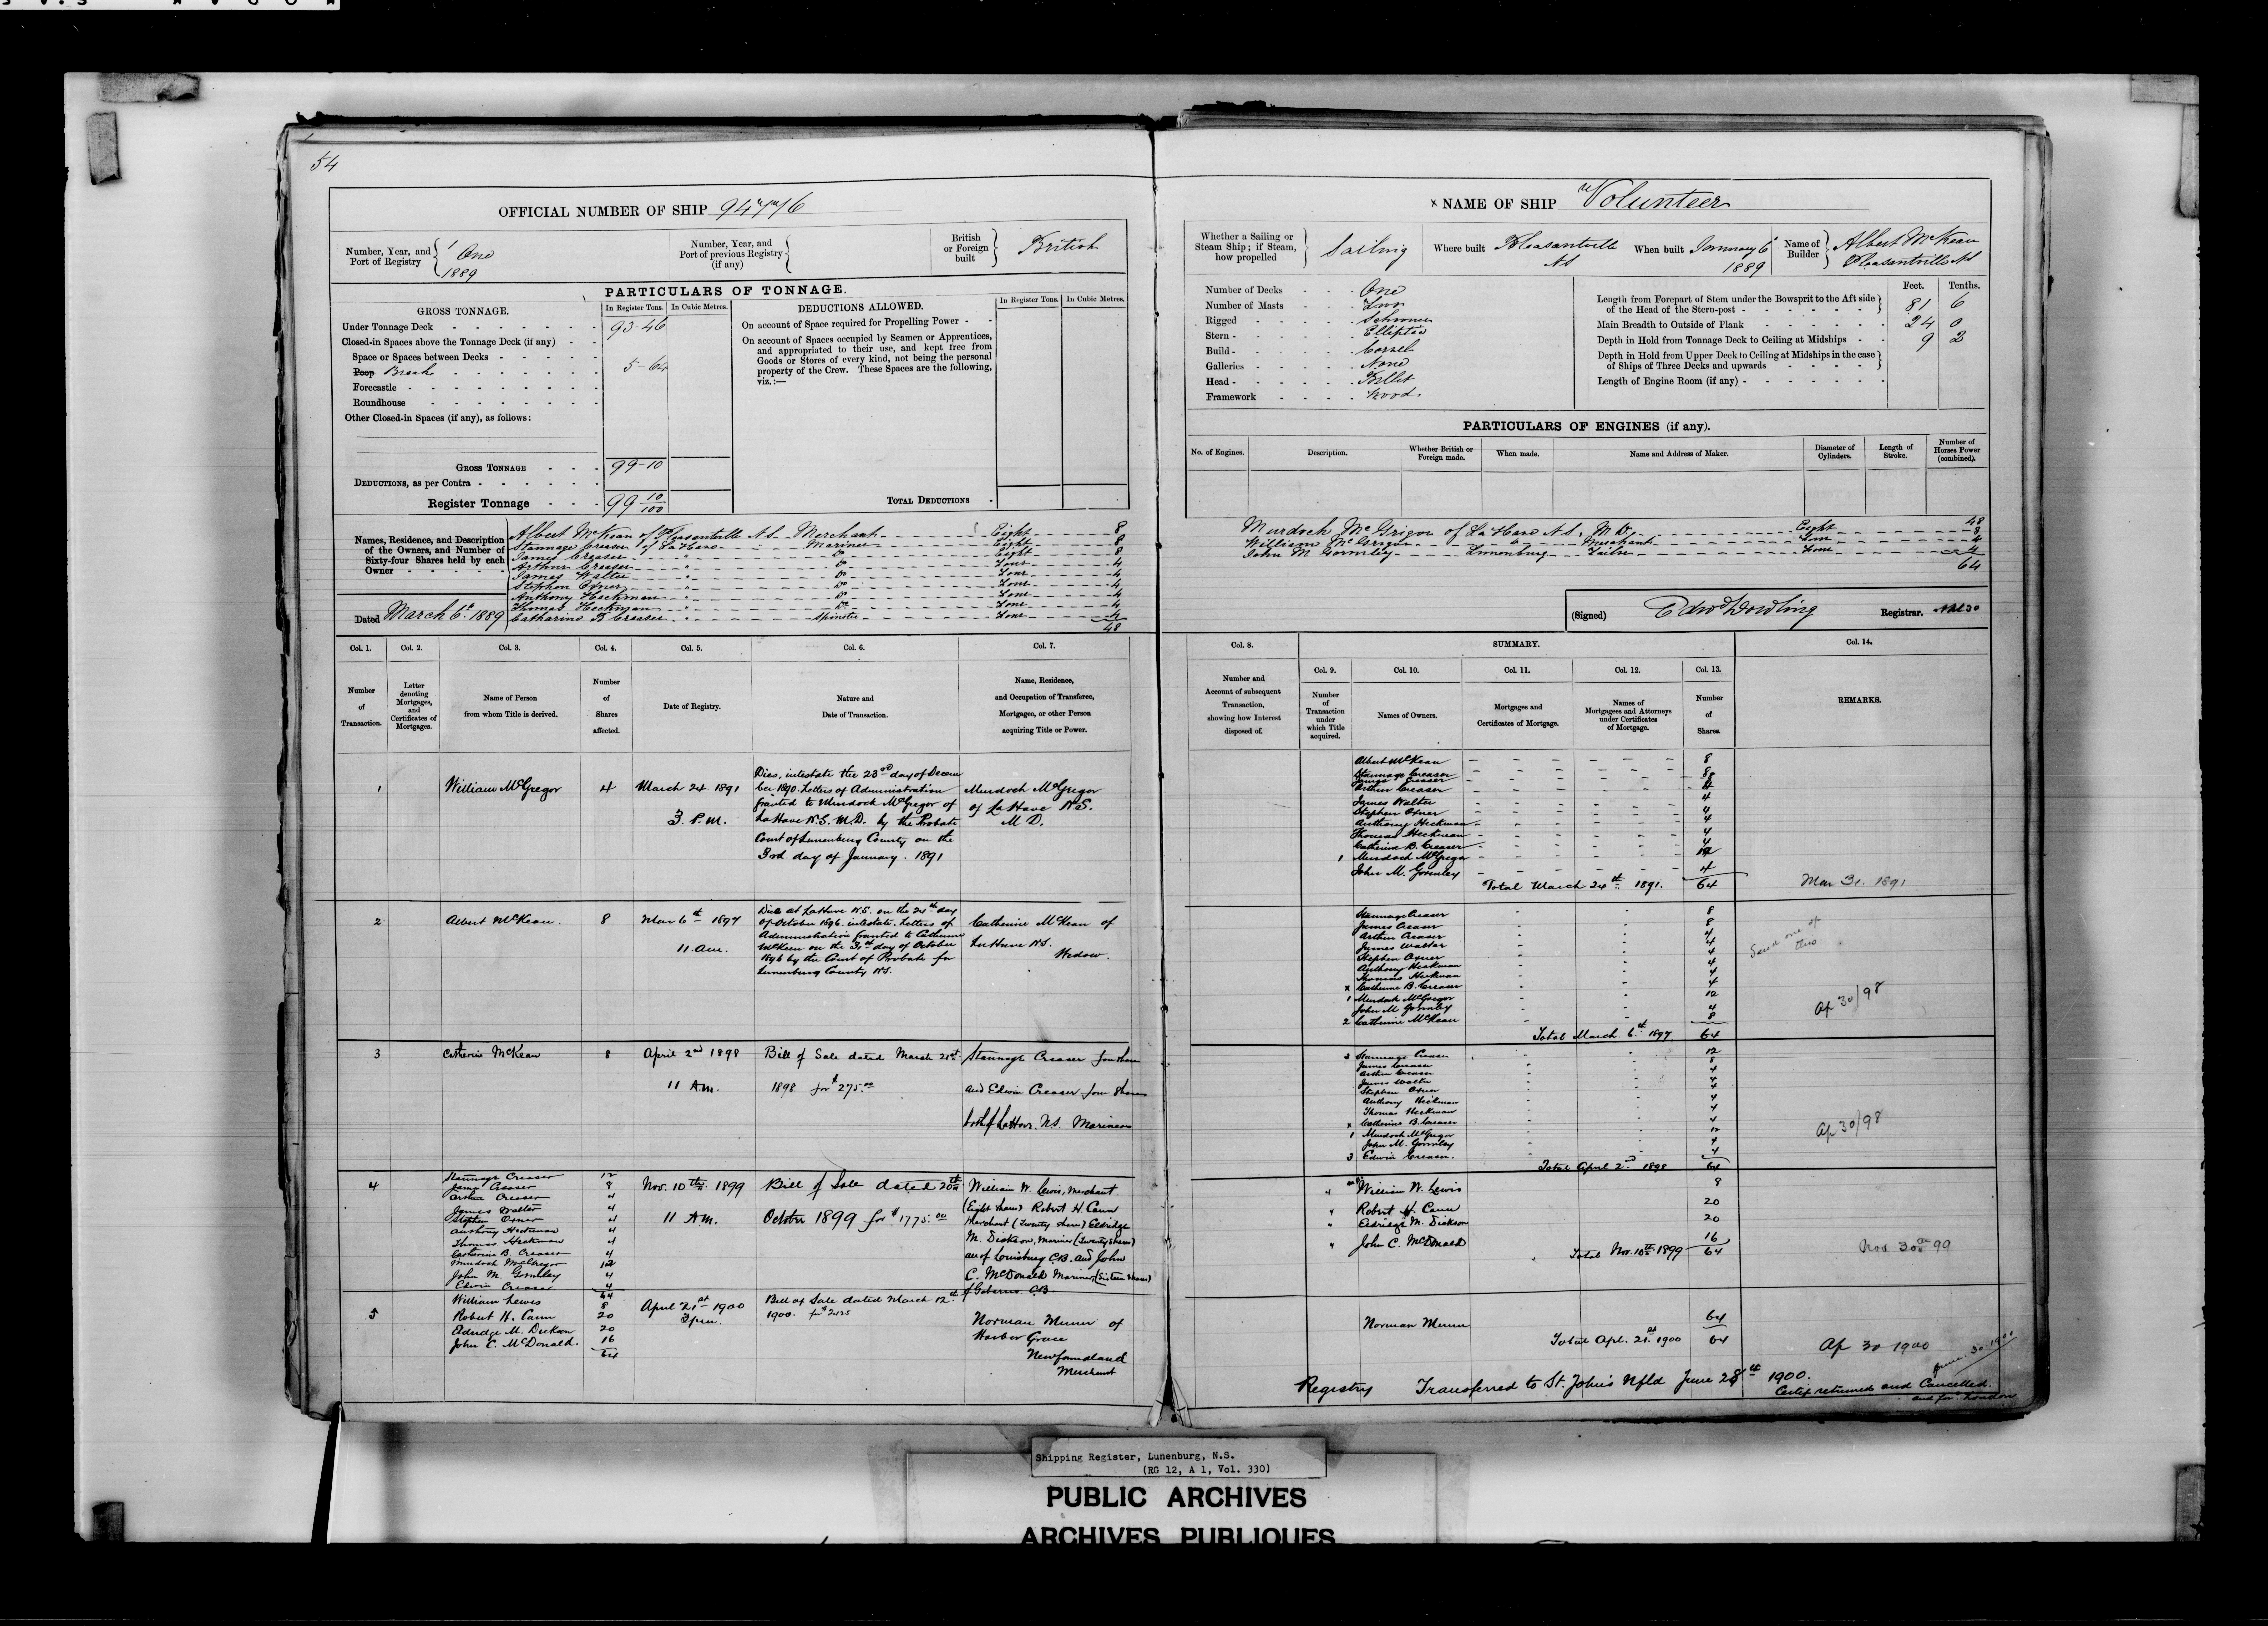 54
OFFICIAL NUMBER OF SHIP 94776
Number, Year, and Port of Registry
One
1889
Number, Year, and Port of previous Registry (if any)
British or Foreign built
British
PARTICULARS OF TONNAGE.
GROSS TONNAGE.
In Register Tons.
In Cubic Metres.
Under Tonnage Deck 93-46
Closed-in Spaces above the Tonnage Deck (if any)
Space or Spaces between Decks
Poop Break 5-64
Forecastle
Roundhouse
Other Closed-in Spaces (if any), as follows:
GROSS TONNAGE 99-10
DEDUCTIONS, as per Contra
Register Tonnage 99 10/100
DEDUCTIONS ALLOWED.
In Register Tons.
In Cubic Metres.
On account of Space required for Propelling Power
On account of Spaces occupied by Seamen or Apprentices,
and appropriated to their use, and kept free from
Goods or Stores of every kind, not being the personal
property of the Crew. These Spaces are the following,
viz.:—
TOTAL DEDUCTIONS
Names, Residence, and Description
of the Owners, and Number of
Sixty-four Shares held by each
Owner
Albert McKean of Pleasantville N.S. Merchant Eight 8
Stannage Creaser of La Have Mariner Eight 8
James Creaser " Do Eight 8
Arthur Creaser " Do Four 4
James Walter " Do Four 4
Stephen Oxner " Do Four 4
Anthony Heckman " Do Four 4
Thomas Heckman " Do Four 4
Catharine B Creaser " Spinster Four 4
48
Dated March 6th 1889
Col. 1.
Number of Transaction.
Col. 2.
Letter denoting Mortgages, and Certificates of Mortgages.
Col. 3.
Name of Person from whom Title is derived.
Col. 4.
Number of Shares affected.
Col. 5.
Date of Registry.
Col. 6.
Nature and Date of Transaction.
Col. 7.
Name, Residence, and Occupation of Transferee, Mortgagee, or other Person acquiring Title or Power.
1
William McGregor
4
March 24 1891
3 P.M.
Dies, intestate the 23rd day of Decem
ber 1890. Letters of Administration
granted to Murdoch McGregor of
La Have N.S. M.D. by the Probate
Court of Lunenburg County on the
3rd day of January. 1891
Murdoch McGregor
of La Have N.S.
M D.
2
Albert McKean.
8
Mar 6th 1897
11 am.
Died at La Have N.S. on the 24th day
of October 1896. intestate. Letters of
Administration granted to Catherine
McKean on the 31st day of October
1896 by the Court of Probate for
Lunenburg County N.S.
Catherine McKean of
La Have N.S.
Widow.
3
Catherine McKean
8
April 2nd 1898
11 A.m.
Bill of Sale dated March 21st
1898 for $275.00
Stannage Creaser four shares
and Edwin Creaser four shares
both of La Have. N.S. Mariners
4
Stannage Creaser 12
James Creaser 8
Arthur Creaser 4
James Walter 4
Stephen Oxner 4
Anthony Heckman 4
Thomas Heckman 4
Catherine B. Creaser 4
Murdoch McGregor 12
John M. Gormley 4
Edwin Creaser 4
64
Nov. 10th 1899
11 A.m.
Bill of Sale dated 20th
October 1899 for $1775.00
William W. Lewis, Merchant
(Eight shares) Robert H. Cann
Merchant (Twenty shares) Eldridge
M. Dickson, Mariner (Twenty shares)
all of Louisburg C.B. and John
C. McDonald Mariner (Sixteen shares)
of Gabarus C.B.
5
William Lewis 8
Robert H. Cann 20
Eldridge M. Dickson 20
John C. McDonald. 16
64
April 21st 1900
3 pm.
Bill of Sale dated March 12th
1900.
Norman Munn of
Harbor Grace
Newfoundland
Merchant
NAME OF SHIP "Volunteer
Whether a Sailing or Steam Ship; if Steam, how propelled
Sailing
Where built
Pleasantville
NS
When built
January 6
1889
Name of Builder
Albert McKean
Pleasantville NS
Number of Decks One
Number of Masts Two
Rigged Schooner
Stern Elliptic
Build Carvel
Galleries None
Head Billet
Framework Wood.
Feet. Tenths.
Length from Forepart of Stem under the Bowsprit to the Aft side
of the Head of the Stern-post 81 6
Main Breadth to Outside of Plank 24 0
Depth in Hold from Tonnage Deck to Ceiling at Midships 9 2
Depth in Hold from Upper Deck to Ceiling at Midships in the case
of Ships of Three Decks and upwards
Length of Engine Room (if any)
PARTICULARS OF ENGINES (if any).
No. of Engines.
Description.
Whether British or Foreign made.
When made.
Name and Address of Maker.
Diameter of Cylinders.
Length of Stroke.
Number of Horses Power (combined).
48
Murdoch McGrigor of La Have N.S. M.D. Eight 8
William McGrigor " Merchant Four 4
John M Gormley Lunenburg Sailor Four 4
64
(Signed) Edwd Dowling Registrar.
Col. 8.
Number and Account of subsequent Transaction, showing how Interest disposed of.
SUMMARY.
Col. 9.
Number of Transaction under which Title acquired.
Col. 10.
Names of Owners.
Col. 11.
Mortgages and Certificates of Mortgage.
Col. 12.
Names of Mortgagees and Attorneys under Certificates of Mortgage.
Col. 13.
Number of Shares.
Col. 14.
REMARKS.
Albert McKean 8
Stannage Creaser 8
James Creaser 8
Arthur Creaser 4
James Walter 4
Stephen Oxner 4
Anthony Heckman 4
Thomas Heckman 4
Catherine B. Creaser 4
1 Murdoch McGregor 12
John M. Gormley 4
Total March 24th 1891. 64
Mar 31. 1891
Stannage Creaser 8
James Creaser 8
Arthur Creaser 4
James Walter 4
Stephen Oxner 4
Anthony Heckman 4
Thomas Heckman 4
x Catherine B. Creaser 4
1 Murdoch McGregor 12
John M Gormley 4
2 Catherine McKean 8
Total March 6th 1897 64
Send one of
this
Ap 30/98
3 Stannage Creaser 12
James Creaser 8
Arthur Creaser 4
James Walter 4
Stephen Oxner 4
Anthony Heckman 4
Thomas Heckman 4
x Catherine B. Creaser 4
1 Murdoch McGregor 12
John M. Gormley 4
3 Edwin Creaser. 4
Total April 2nd 1898 64
Ap 30/98
4 William W. Lewis 8
" Robert H. Cann 20
" Eldridge M. Dickson 20
" John C. McDonald 16
Total Nov. 10th 1899 64
Nov 30th 99
Norman Munn 64
Total Apl. 21st 1900 64
Ap 30 1900
June 30 1900
Registry Transferred to St. John's Nfld June 28th 1900.
Certif returned and Cancelled.
and for London
Shipping Register, Lunenburg, N.S.
(RG 12, A 1, Vol. 330)
PUBLIC ARCHIVES
ARCHIVES PUBLIQUES